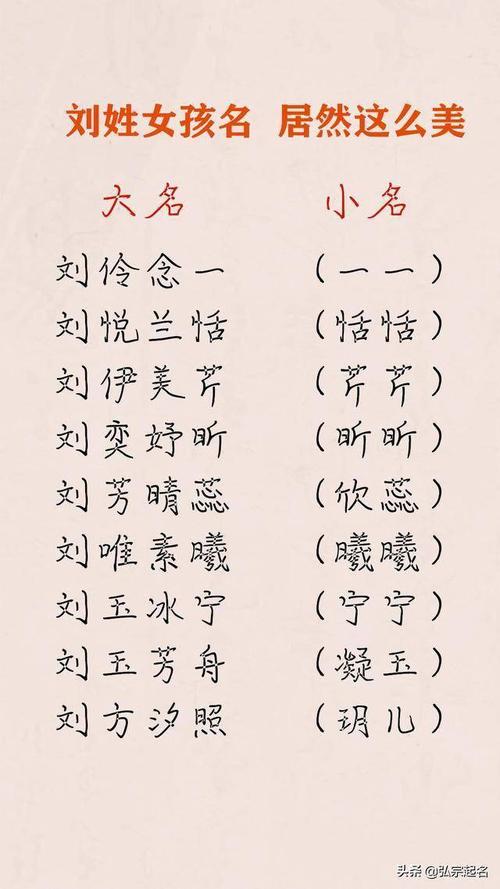 刘姓女孩名 居然这么美
大名 小名
刘伶念一 （一一）
刘悦兰恬 （恬恬）
刘伊美芹 （芹芹）
刘奕妤昕 （昕昕）
刘芳晴蕊 （欣蕊）
刘唯素曦 （曦曦）
刘玉冰宁 （宁宁）
刘玉芳舟 （凝玉）
刘方汐照 （玥儿）
头条 @弘宗起名